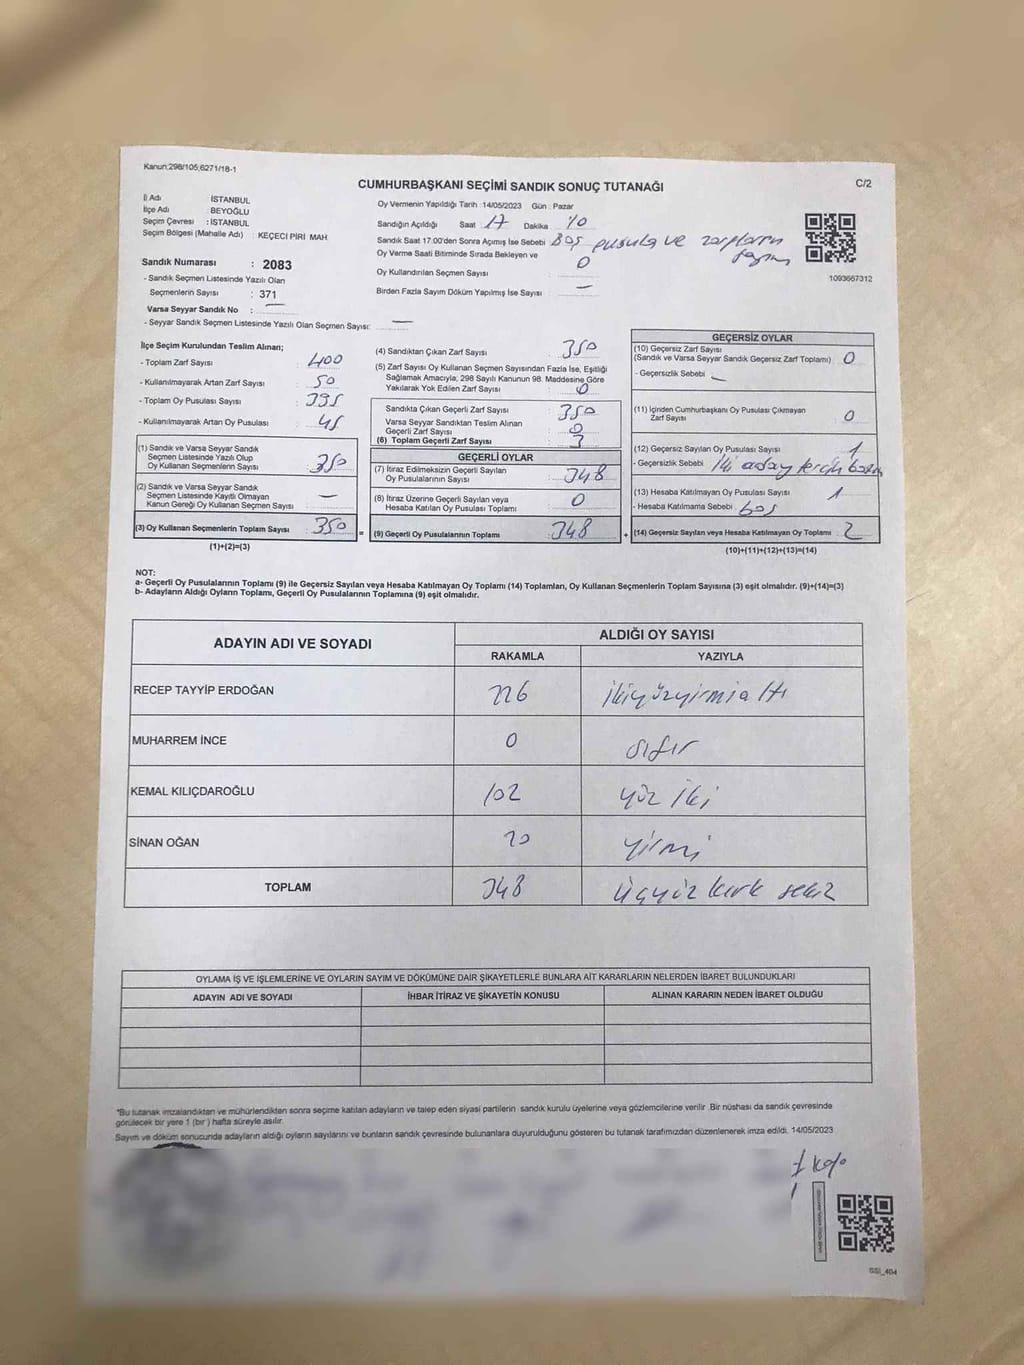 Kanun;298/105;6271/18-1
C/2
CUMHURBAŞKANI SEÇİMİ SANDIK SONUÇ TUTANAĞI
İl Adı İSTANBUL
İlçe Adı : BEYOĞLU
Seçim Çevresi : İSTANBUL
Seçim Bölgesi (Mahalle Adı) : KEÇECİ PİRİ MAH.
Sandık Numarası : 2083
- Sandık Seçmen Listesinde Yazılı Olan
Seçmenlerin Sayısı : 371
Varsa Seyyar Sandık No : —
- Seyyar Sandık Seçmen Listesinde Yazılı Olan Seçmen Sayısı: —
Oy Vermenin Yapıldığı Tarih :14/05/2023 Gün : Pazar
Sandığın Açıldığı Saat 17 Dakika 10
Sandık Saat 17:00'den Sonra Açımış İse Sebebi Boş pusula ve zarfların sayımı
Oy Verme Saati Bitiminde Sırada Bekleyen ve
Oy Kullandırılan Seçmen Sayısı : 0
Birden Fazla Sayım Döküm Yapılmış İse Sayısı : —
1093667312
İlçe Seçim Kurulundan Teslim Alınan;
- Toplam Zarf Sayısı : 400
- Kullanılmayarak Artan Zarf Sayısı : 50
- Toplam Oy Pusulası Sayısı : 395
- Kullanılmayarak Artan Oy Pusulası : 45
(1) Sandık ve Varsa Seyyar Sandık
Seçmen Listesinde Yazılı Olup
Oy Kullanan Seçmenlerin Sayısı : 350
(2) Sandık ve Varsa Seyyar Sandık
Seçmen Listesinde Kayıtlı Olmayan
Kanun Gereği Oy Kullanan Seçmen Sayısı : —
(3) Oy Kullanan Seçmenlerin Toplam Sayısı : 350 =
(1)+(2)=(3)
(4) Sandıktan Çıkan Zarf Sayısı : 350
(5) Zarf Sayısı Oy Kullanan Seçmen Sayısından Fazla İse, Eşitliği
Sağlamak Amacıyla; 298 Sayılı Kanunun 98. Maddesine Göre
Yakılarak Yok Edilen Zarf Sayısı : 0
Sandıkta Çıkan Geçerli Zarf Sayısı : 350
Varsa Seyyar Sandıktan Teslim Alınan
Geçerli Zarf Sayısı : 0
(6) Toplam Geçerli Zarf Sayısı :
GEÇERLİ OYLAR
(7) İtiraz Edilmeksizin Geçerli Sayılan
Oy Pusulasının Sayısı : 348
(8) İtiraz Üzerine Geçerli Sayılan veya
Hesaba Katılan Oy Pusulası Toplamı : 0
(9) Geçerli Oy Pusulalarının Toplamı : 348 +
GEÇERSİZ OYLAR
(10) Geçersiz Zarf Sayısı
(Sandık ve Varsa Seyyar Sandık Geçersiz Zarf Toplamı) : 0
- Geçersizlik Sebebi : —
(11) İçinden Cumhurbaşkanı Oy Pusulası Çıkmayan
Zarf Sayısı : 0
(12) Geçersiz Sayılan Oy Pusulası Sayısı : 1
- Geçersizlik Sebebi : İki aday tercih
(13) Hesaba Katılmayan Oy Pusulası Sayısı : 1
- Hesaba Katılmama Sebebi : boş
(14) Geçersiz Sayılan veya Hesaba Katılmayan Oy Toplamı : 2
(10)+(11)+(12)+(13)=(14)
NOT:
a- Geçerli Oy Pusulalarının Toplamı (9) ile Geçersiz Sayılan veya Hesaba Katılmayan Oy Toplamı (14) Toplamları, Oy Kullanan Seçmenlerin Toplam Sayısına (3) eşit olmalıdır. (9)+(14)=(3)
b- Adayların Aldığı Oyların Toplamı, Geçerli Oy Pusulalarının Toplamına (9) eşit olmalıdır.
ADAYIN ADI VE SOYADI ALDIĞI OY SAYISI
RAKAMLA YAZIYLA
RECEP TAYYİP ERDOĞAN 226 ikiyüzyirmialtı
MUHARREM İNCE 0 sıfır
KEMAL KILIÇDAROĞLU 102 yüz iki
SİNAN OĞAN 20 yirmi
TOPLAM 348 üçyüz kırk sekiz
OYLAMA İŞ VE İŞLEMLERİNE VE OYLARIN SAYIM VE DÖKÜMÜNE DAİR ŞİKAYETLERLE BUNLARA AİT KARARLARIN NELERDEN İBARET BULUNDUKLARI
ADAYIN ADI VE SOYADI İHBAR İTİRAZ VE ŞİKAYETİN KONUSU ALINAN KARARIN NEDEN İBARET OLDUĞU
*Bu tutanak imzalandıktan ve mühürlendikten sonra seçime katılan adayların ve talep eden siyasi partilerin sandık kurulu üyelerine veya gözlemcilerine verilir .Bir nüshası da sandık çevresinde
görülecek bir yere 1 (bir ) hafta süreyle asılır.
Sayım ve döküm sonucunda adayların aldığı oyların sayılarını ve bunların sandık çevresinde bulunanlara duyurulduğunu gösteren bu tutanak tarafımızdan düzenlenerek imza edildi. 14/05/2023
SSI_404